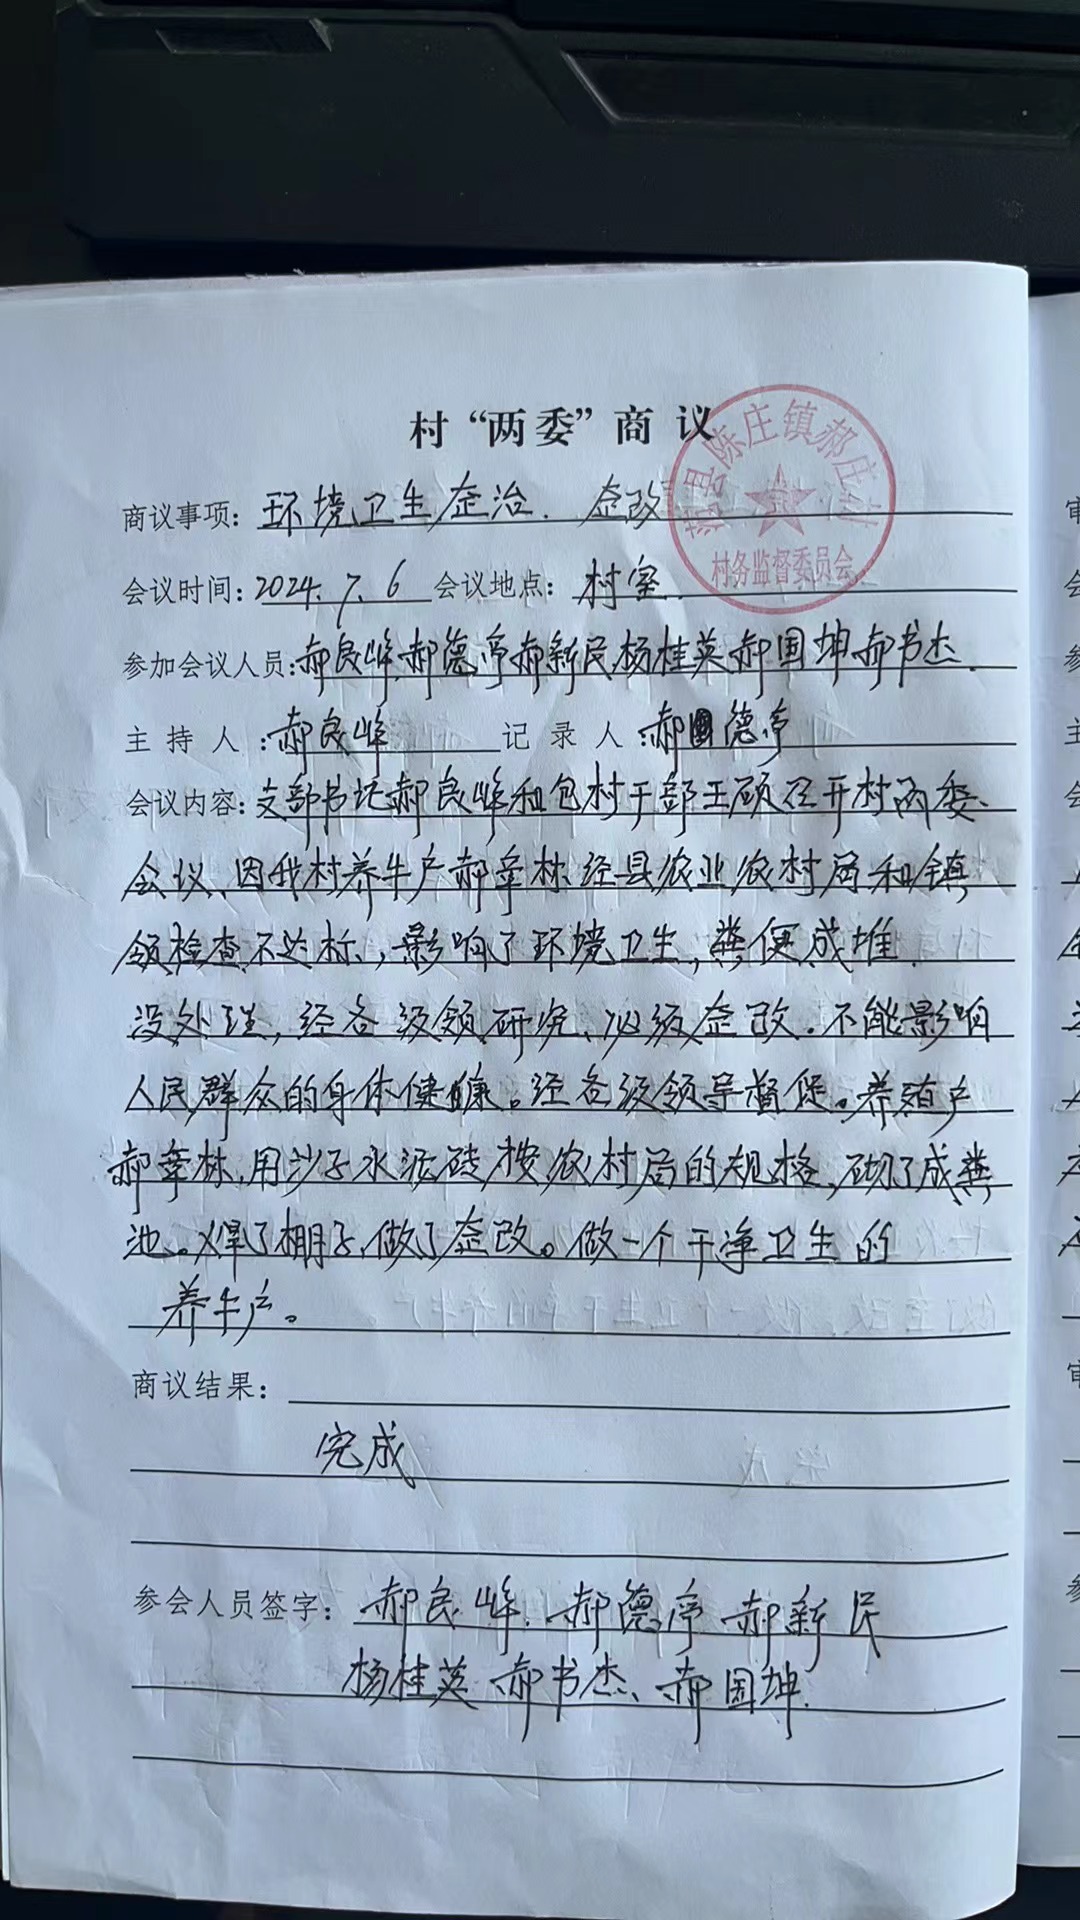 村“两委”商议
商议事项：环境卫生整治．整改
范县陈庄镇郝庄村
村务监督委员会
会议时间：2024.7.6 会议地点：村室
参加会议人员：郝良峰.郝德亭郝新民杨桂英郝国坤郝书杰.
主持人：郝良峰 记录人：郝德亭
会议内容：支部书记郝良峰和包村干部王硕召开村两委
会议、因我村养牛户郝章林经县农业农村局和镇
领检查不达标，影响了环境卫生，粪便成堆．
没处理，经各级领研究、必须整改．不能影响
人民群众的身体健康。经各级领导督促。养殖户
郝章林，用沙子水泥砖按农村局的规格，砌了成粪
池。焊了棚子，做了整改。做一个干净卫生的
养牛户。
商议结果：
完成
参会人员签字：郝良峰．郝德亭 郝新民
杨桂英 郝书杰、郝国坤.